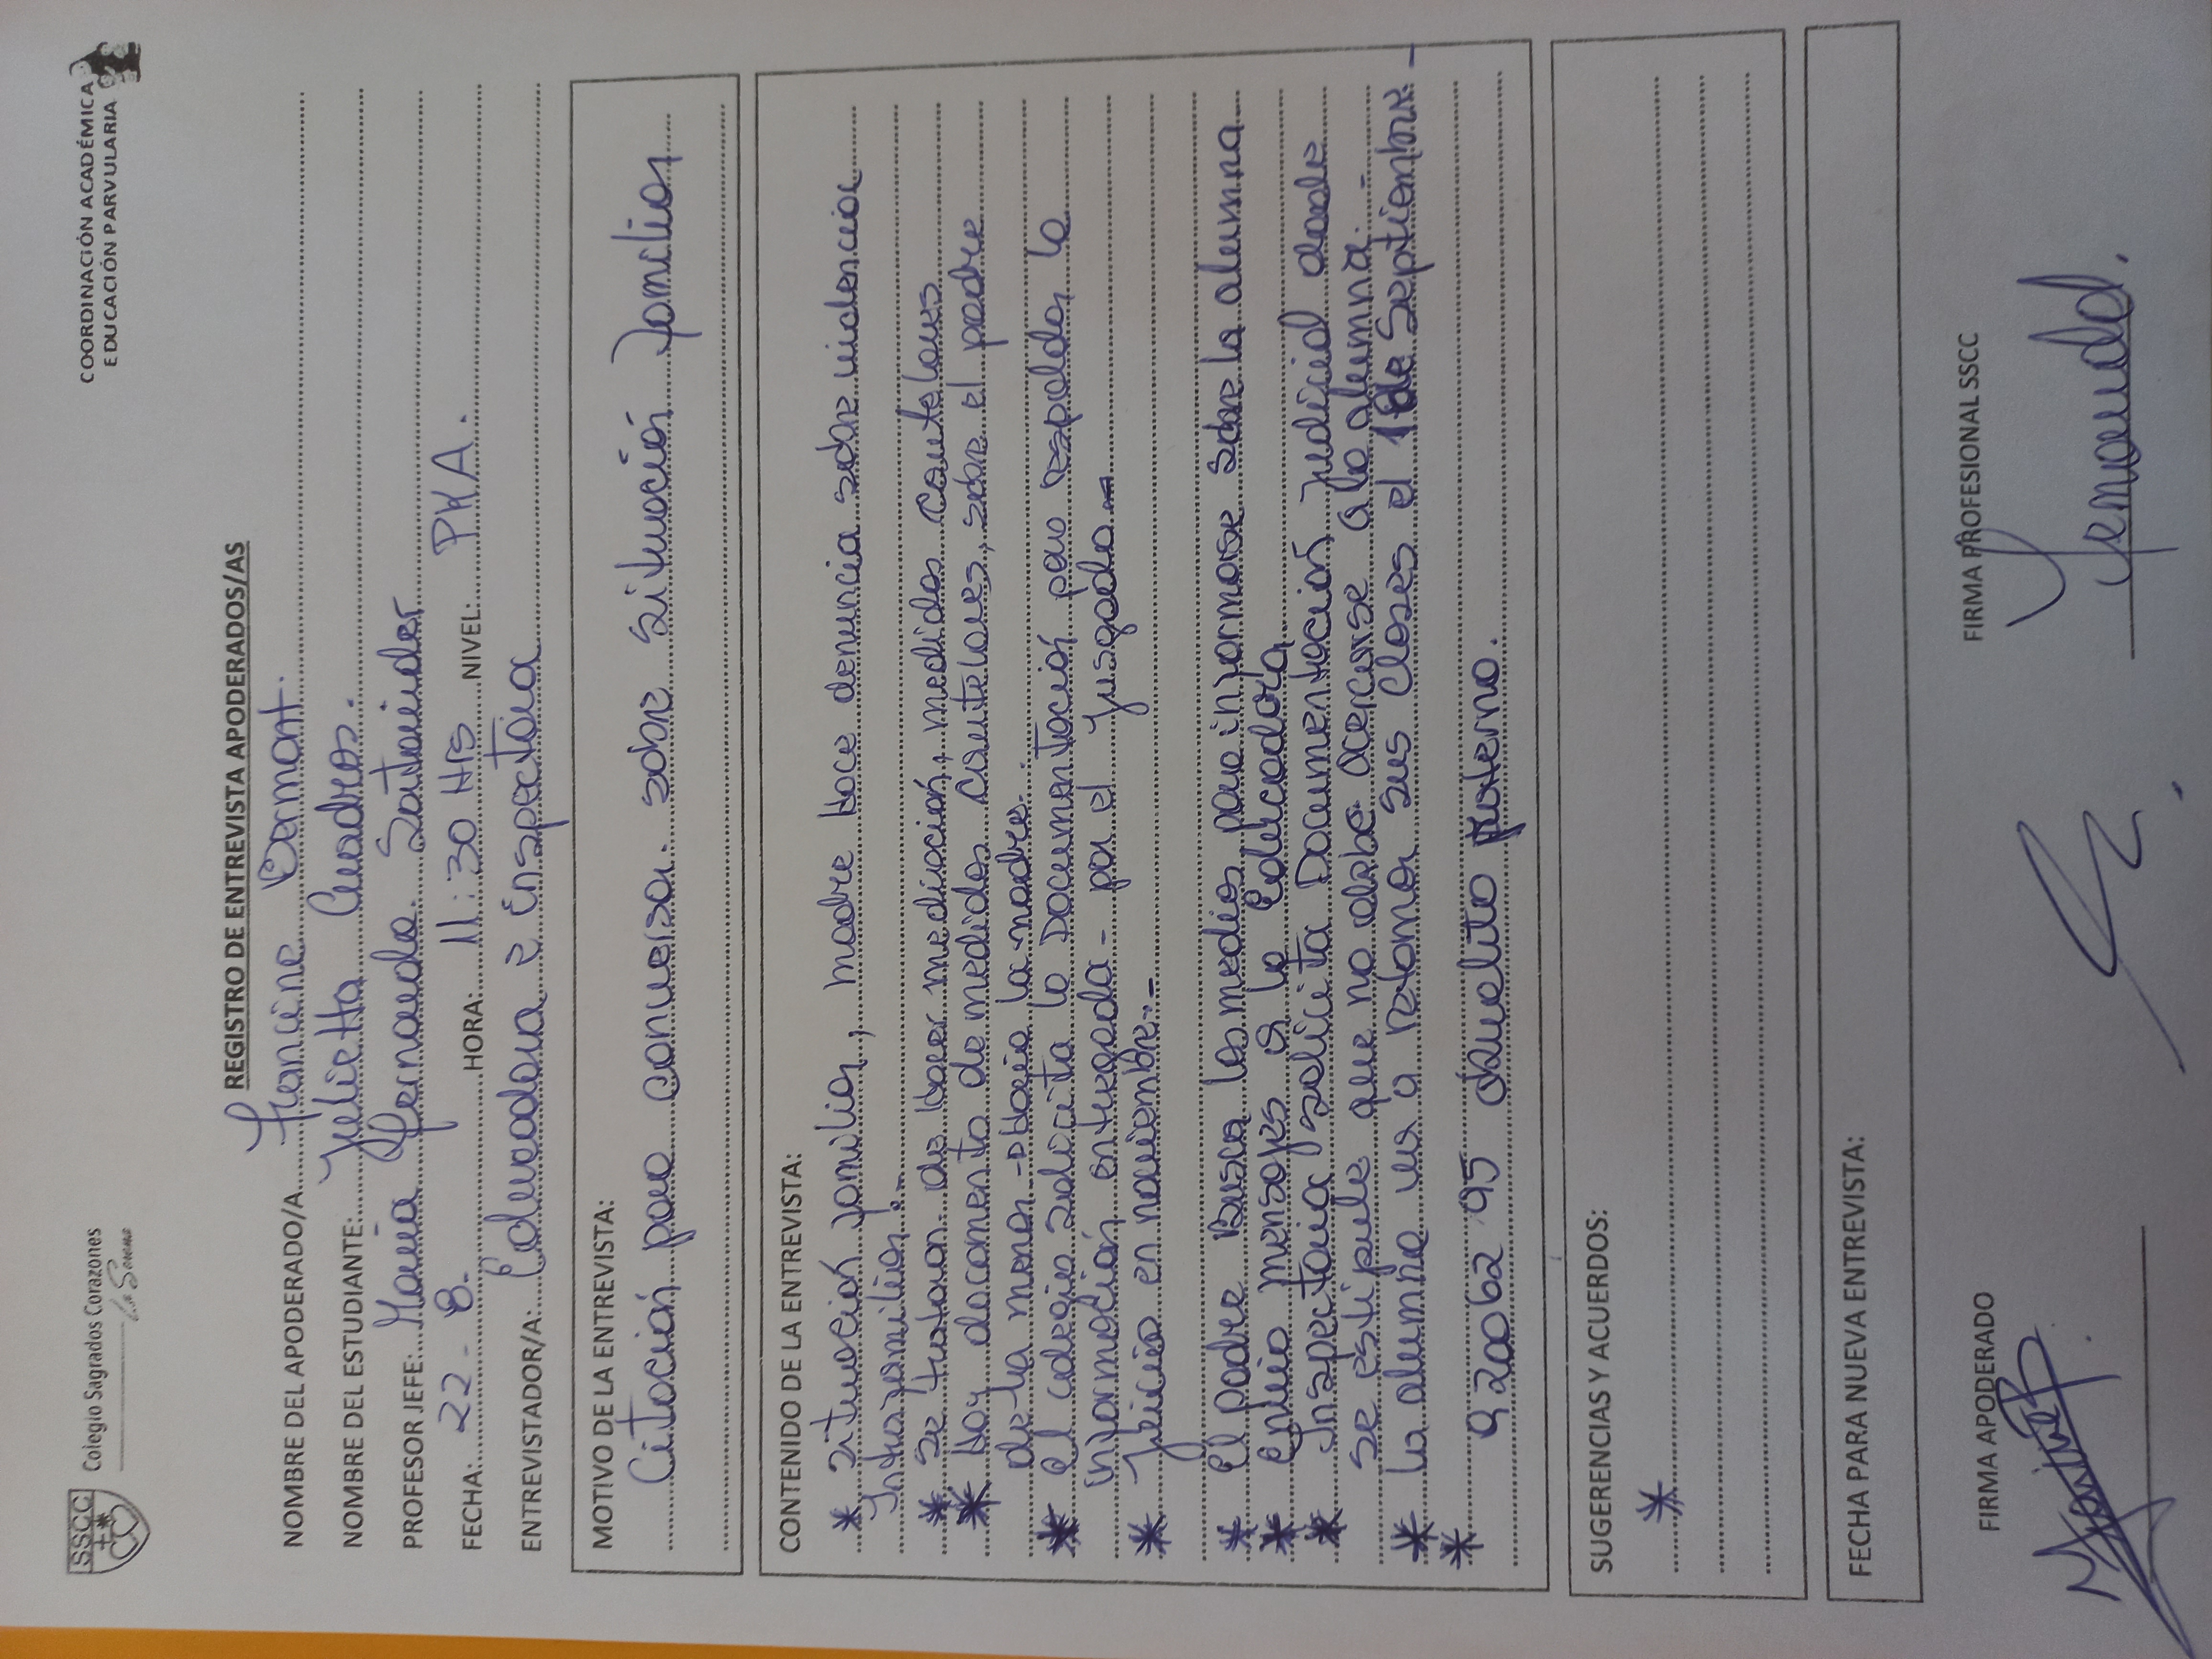 SSCC
Colegio Sagrados Corazones
La Serena
COORDINACIÓN ACADÉMICA
EDUCACIÓN PARVULARIA
REGISTRO DE ENTREVISTA APODERADOS/AS
NOMBRE DEL APODERADO/A: Francine
NOMBRE DEL ESTUDIANTE: Julietta Cuadros.
PROFESOR JEFE: María Fernanda Santander
FECHA: 22-8. HORA: 11:30 Hrs NIVEL: PKA.
ENTREVISTADOR/A: Educadora e Inspectora
MOTIVO DE LA ENTREVISTA:
Citación para conversar sobre situación familiar
CONTENIDO DE LA ENTREVISTA:
* Situación familiar, madre hace denuncia sobre violencia
Intrafamiliar.-
* Se trataron de hacer mediación, medidas cautelares
* hay documento de medidas cautelares, sobre el padre
de la menor - hacia la madre.
* el colegio solicita la Documentación para respaldar la
información entregada - por el Jusgado -
* Juicio en noviembre.-
* El padre Busca los medios para informarse sobre la alumna
* Envía mensajes a la Educadora
* Inspectoria solicita Documentación judicial donde
se estipule que no debe acercarse a la alumna.-
* la alumna va a retomar sus clases el 1 de Septiembre -
* 9 20062 95 abuelito paterno.
SUGERENCIAS Y ACUERDOS:
*
FECHA PARA NUEVA ENTREVISTA:
FIRMA APODERADO
FIRMA PROFESIONAL SSCC